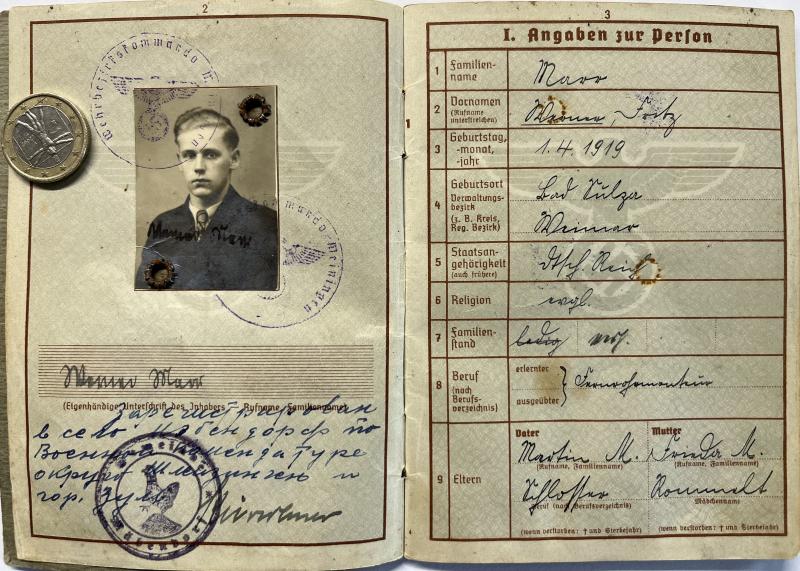 2
Wehrbezirkskommando
Werner Marr
kommando Meiningen
Werner Marr
(Eigenhändige Unterschrift des Inhabers – Rufname, Familienname)
Зарегистрирован
в село
Военной комендатуре
округа и
гор. Зуль
3
I. Angaben zur Person
1 Familien-
name
Marr
2 Vornamen
(Rufname
unterstreichen)
Werner, Fritz
3 Geburtstag,
-monat,
-jahr
1.4.1919
4 Geburtsort
Verwaltungs-
bezirk
(z. B. Kreis,
Reg. Bezirk)
Bad Sulza
Weimar
5 Staatsan-
gehörigkeit
(auch frühere)
dtsch. Reich
6 Religion
evgl.
7 Familien-
stand
ledig verh.
8 Beruf
(nach
Berufs-
verzeichnis)
erlernter
ausgeübter
9 Eltern
Vater Mutter
Martin M. Frieda M.
(Rufname, Familienname) (Rufname, Familienname)
Schlosser Rommelt
Beruf (nach Berufsverzeichnis) Mädchenname
(wenn verstorben: † und Sterbejahr) (wenn verstorben: † und Sterbejahr)